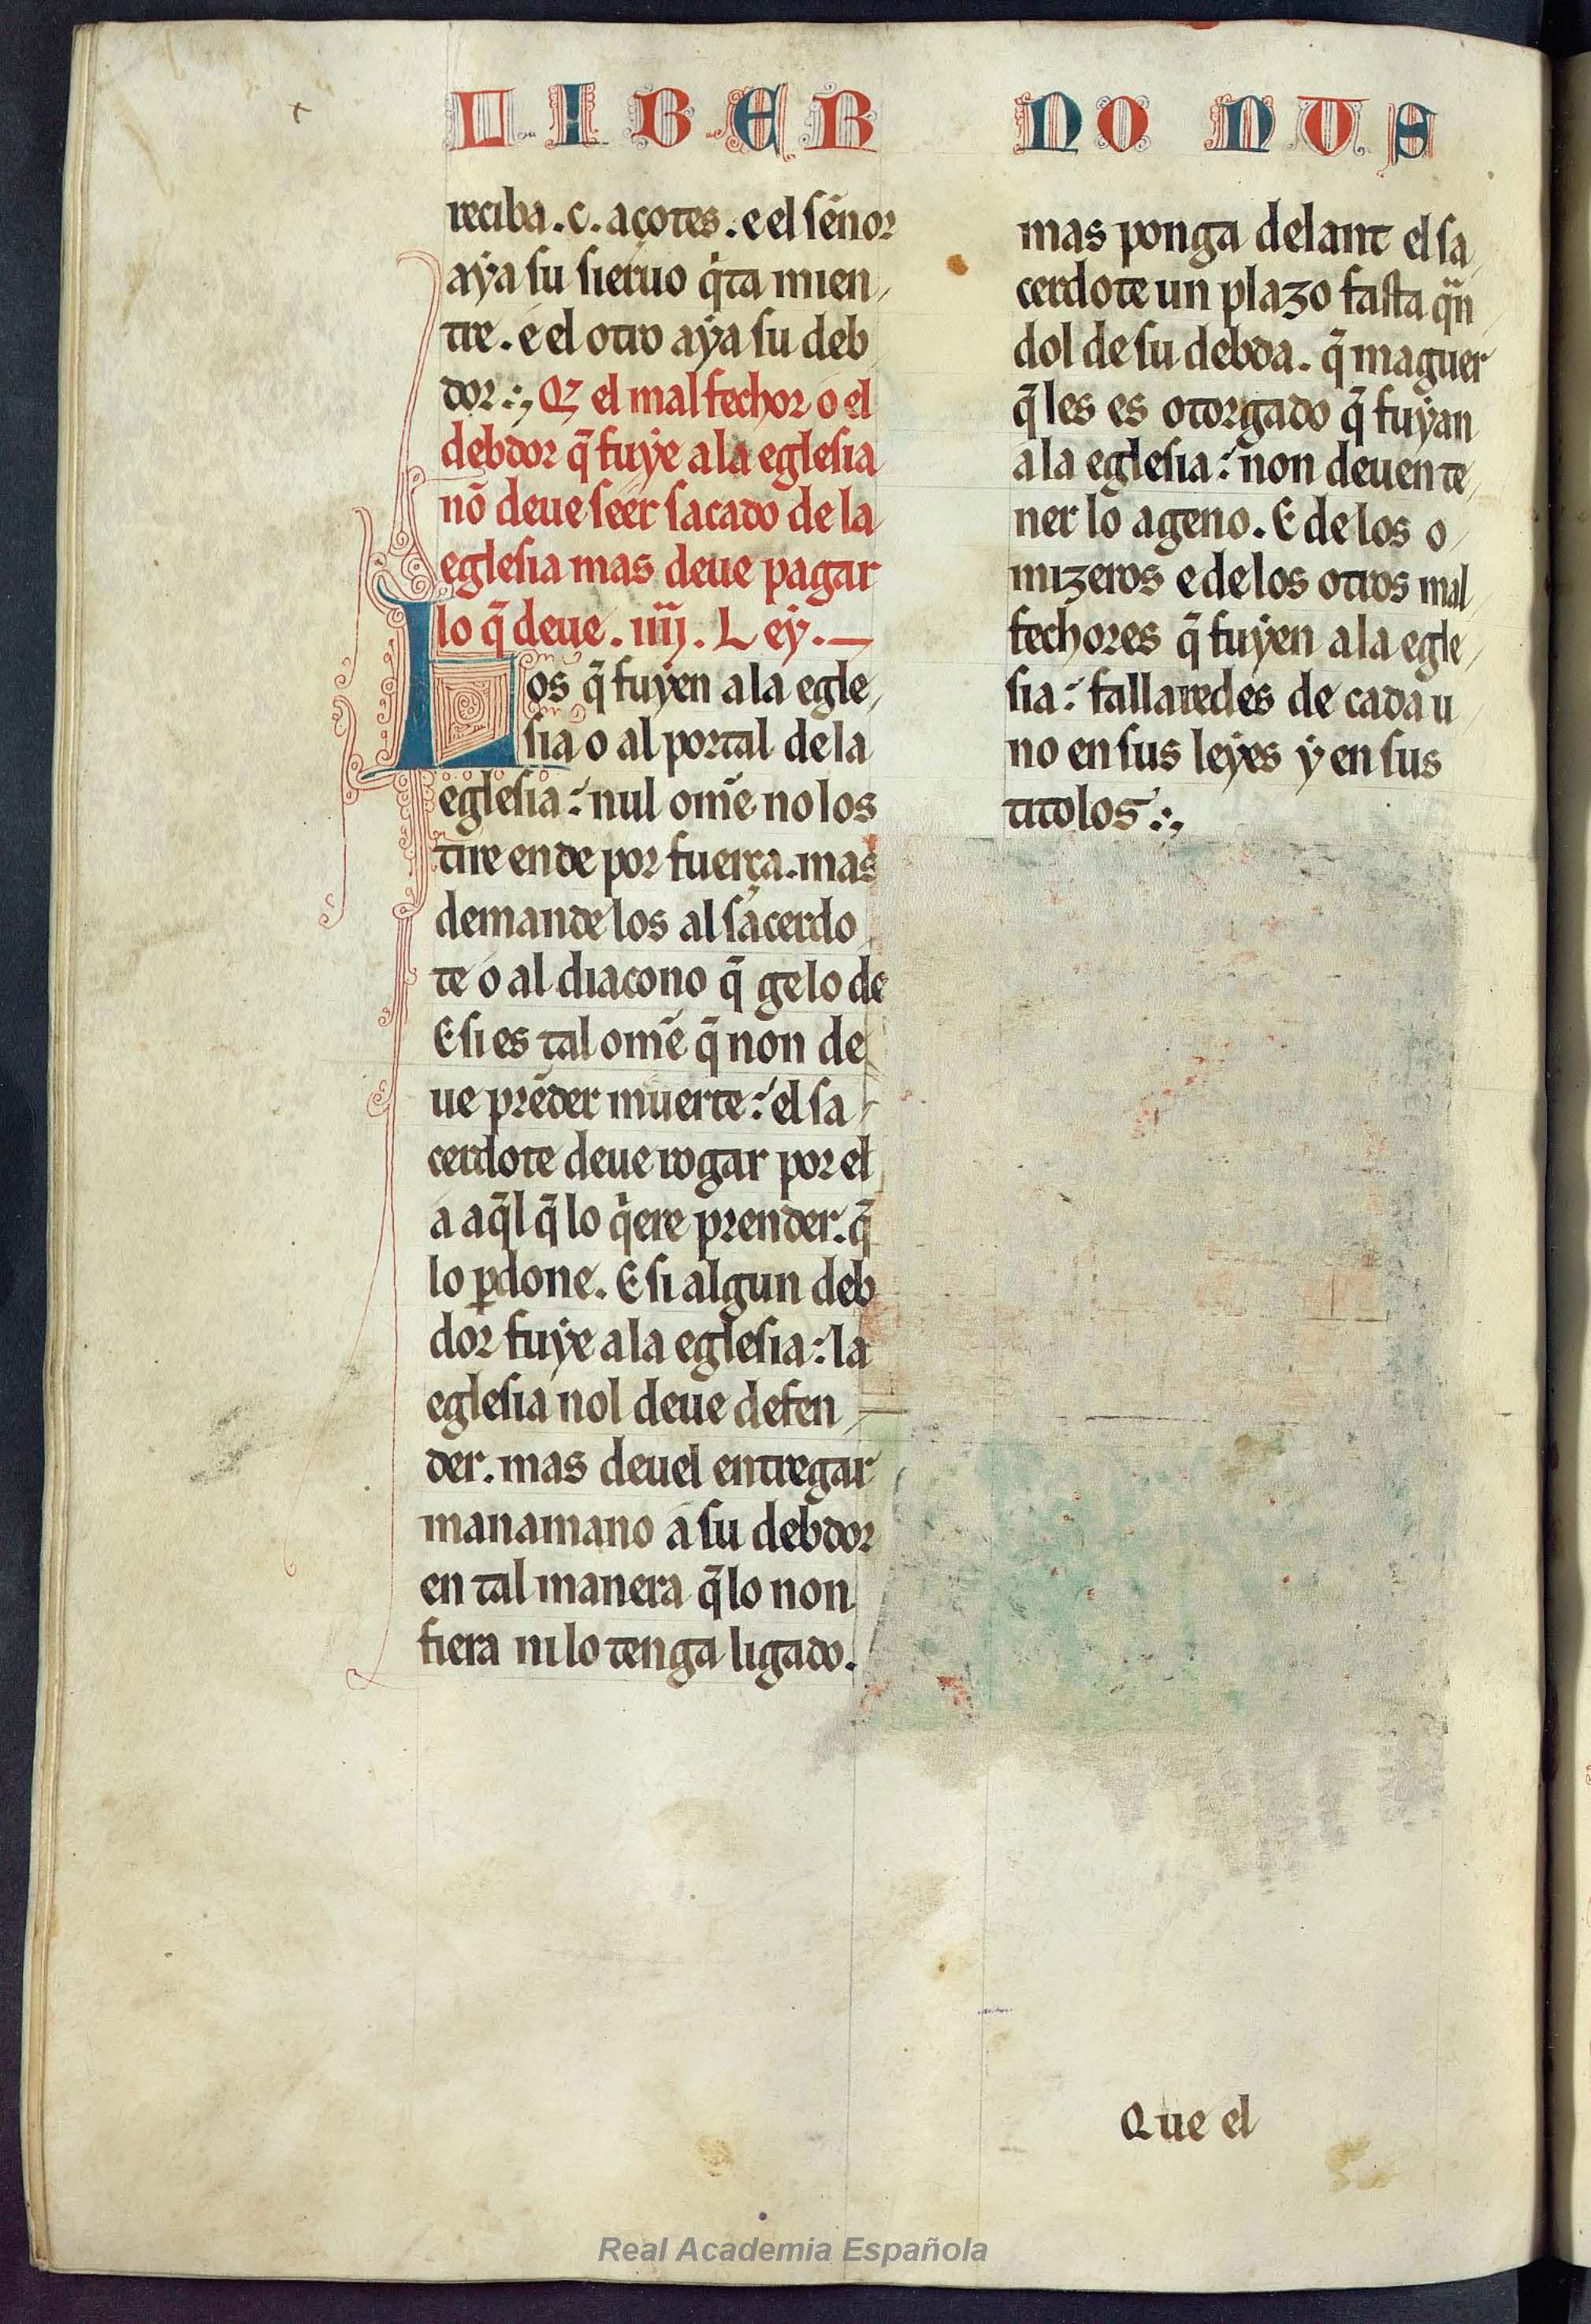 LIBER NONUS
reciba .c. açotes. e el sẽnor
aẏa su sieruo q̇ta mien
tre. e el otro aẏa su deb
dor:, Q̃ el malfechor o el
debdor q̃ fuẏe a la eglesia
nõ deue seer sacado de la
eglesia mas deue pagar
lo q̃ deue. iiij. Leẏ.
Los q̃ fuẏen a la egle
sia o al portal de la
eglesia: nul om̃e no los
tire ende por fuerça. mas
demande los al sacerdo
te o al diacono q̃ ge lo de
E si es tal om̃e q̃ non de
ue prẽder muerte: el sa
cerdote deue rogar por el
a aq̃l q̃ lo q̇ere prender. q̃
lo ꝑdone. E si algun deb
dor fuẏe a la eglesia: la
eglesia nol deue defen
der. mas deuel entregar
manamano a su debdor
en tal manera q̃ lo non
fiera ni lo tenga ligado.
mas ponga delant el sa
cerdote un plazo fasta q̃n
dol de su debda. q̃ maguer
q̃ les es otorgado q̃ fuẏan
a la eglesia: non deuen te
ner lo ageno. E de los o
mizeros e de los otros mal
fechores q̃ fuẏen a la egle
sia: fallaredes de cada u
no en sus leẏes ẏ en sus
titolos:,
Que el
Real Academia Española